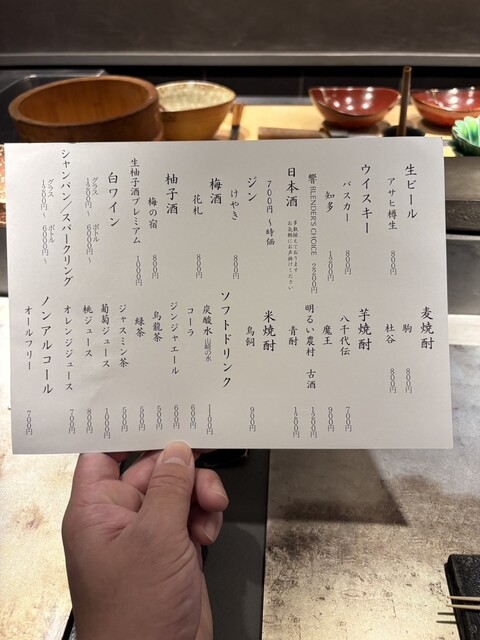 生ビール
アサヒ樽生 800円
ウイスキー
バスカー 800円
知多 1200円
響 BLENDER'S CHOICE 2500円
日本酒
700円〜時価
多数揃えております
お気軽にお声掛けください
ジン
けやき 800円
梅酒
花札 800円
柚子酒
梅の宿 800円
生柚子酒プレミアム 1000円
白ワイン
グラス 1200円〜
ボトル 6000円〜
シャンパン／スパークリング
グラス 1500円〜
ボトル 6000円〜
麦焼酎
駒 800円
杜谷 800円
芋焼酎
八千代伝 700円
魔王 900円
明るい農村 古酒 1500円
青酎 1500円
米焼酎
鳥飼 900円
ソフトドリンク
炭酸水 山崎の水 1100円
コーラ 600円
ジンジャエール 600円
烏龍茶 500円
緑茶 500円
ジャスミン茶 500円
葡萄ジュース 1000円
桃ジュース 800円
オレンジジュース 700円
ノンアルコール
オールフリー 700円